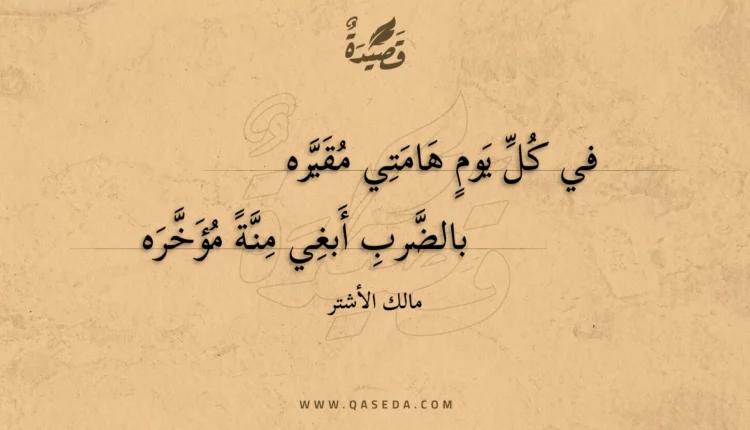 قَصِيْدَةٌ
في كُلِّ يَومٍ هَامَتِي مُقَيَّره
بالضَّربِ أَبغِي مِنَّةً مُؤَخَّرَه
مالك الأشتر
WWW.QASEDA.COM